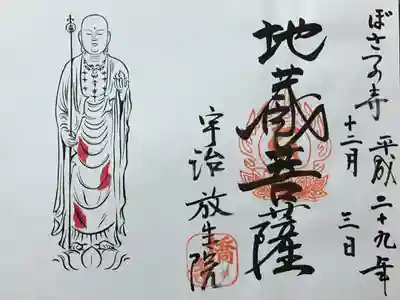 ぼさつの寺 平成二十九年
十二月 三日
地蔵菩薩
宇治 放生院